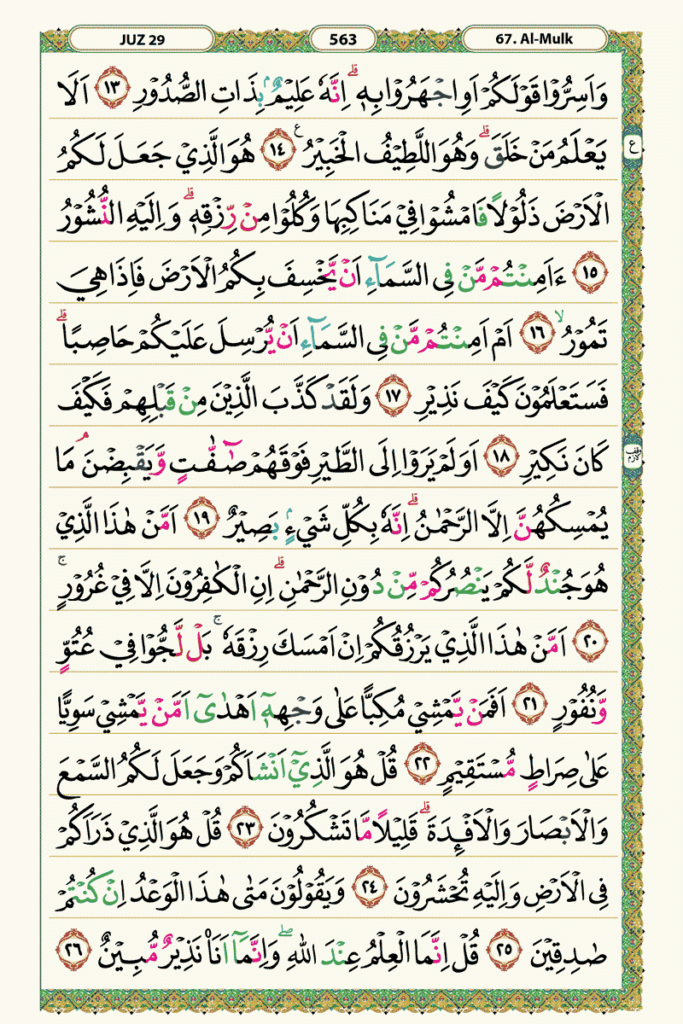 JUZ 29
563
67. Al-Mulk
وَاَسِرُّوْا قَوْلَكُمْ اَوِ اجْهَرُوْا بِهٖۗ اِنَّهٗ عَلِيْمٌ ۢبِذَاتِ الصُّدُوْرِ ١٣ اَلَا
يَعْلَمُ مَنْ خَلَقَۗ وَهُوَ اللَّطِيْفُ الْخَبِيْرُ ࣖ ١٤ هُوَ الَّذِيْ جَعَلَ لَكُمُ
ع
الْاَرْضَ ذَلُوْلًا فَامْشُوْا فِيْ مَنَاكِبِهَا وَكُلُوْا مِنْ رِّزْقِهٖۗ وَاِلَيْهِ النُّشُوْرُ
١٥ ءَاَمِنْتُمْ مَّنْ فِى السَّمَاۤءِ اَنْ يَّخْسِفَ بِكُمُ الْاَرْضَ فَاِذَا هِيَ
تَمُوْرُۙ ١٦ اَمْ اَمِنْتُمْ مَّنْ فِى السَّمَاۤءِ اَنْ يُّرْسِلَ عَلَيْكُمْ حَاصِبًاۗ
فَسَتَعْلَمُوْنَ كَيْفَ نَذِيْرِ ١٧ وَلَقَدْ كَذَّبَ الَّذِيْنَ مِنْ قَبْلِهِمْ فَكَيْفَ
كَانَ نَكِيْرِ ١٨ اَوَلَمْ يَرَوْا اِلَى الطَّيْرِ فَوْقَهُمْ صٰۤفّٰتٍ وَّيَقْبِضْنَۘ مَا
وقف لازم
يُمْسِكُهُنَّ اِلَّا الرَّحْمٰنُۗ اِنَّهٗ بِكُلِّ شَيْءٍۢ بَصِيْرٌ ١٩ اَمَّنْ هٰذَا الَّذِيْ
هُوَ جُنْدٌ لَّكُمْ يَنْصُرُكُمْ مِّنْ دُوْنِ الرَّحْمٰنِۗ اِنِ الْكٰفِرُوْنَ اِلَّا فِيْ غُرُوْرٍۚ
٢٠ اَمَّنْ هٰذَا الَّذِيْ يَرْزُقُكُمْ اِنْ اَمْسَكَ رِزْقَهٗۚ بَلْ لَّجُّوْا فِيْ عُتُوٍّ
وَّنُفُوْرٍ ٢١ اَفَمَنْ يَّمْشِيْ مُكِبًّا عَلٰى وَجْهِهٖٓ اَهْدٰىٓ اَمَّنْ يَّمْشِيْ سَوِيًّا
عَلٰى صِرَاطٍ مُّسْتَقِيْمٍ ٢٢ قُلْ هُوَ الَّذِيْٓ اَنْشَاَكُمْ وَجَعَلَ لَكُمُ السَّمْعَ
وَالْاَبْصَارَ وَالْاَفْـِٕدَةَۗ قَلِيْلًا مَّا تَشْكُرُوْنَ ٢٣ قُلْ هُوَ الَّذِيْ ذَرَاَكُمْ
فِى الْاَرْضِ وَاِلَيْهِ تُحْشَرُوْنَ ٢٤ وَيَقُوْلُوْنَ مَتٰى هٰذَا الْوَعْدُ اِنْ كُنْتُمْ
صٰدِقِيْنَ ٢٥ قُلْ اِنَّمَا الْعِلْمُ عِنْدَ اللّٰهِ ۖوَاِنَّمَآ اَنَا۠ نَذِيْرٌ مُّبِيْنٌ ٢٦